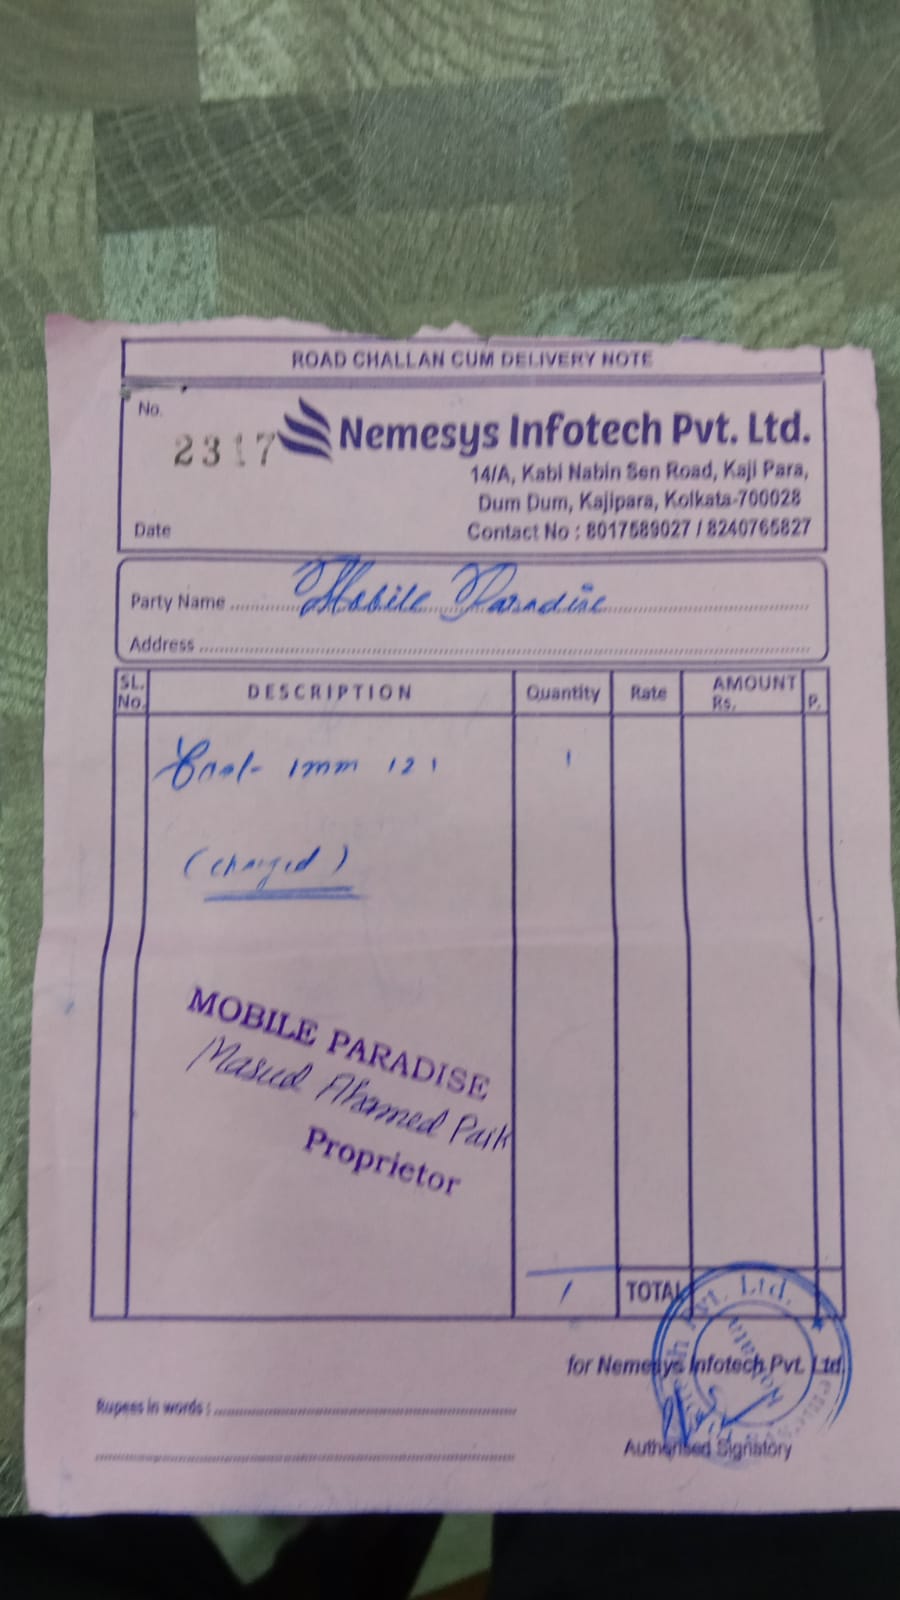 ROAD CHALLAN CUM DELIVERY NOTE
No.
2317
Nemesys Infotech Pvt. Ltd.
14/A, Kabi Nabin Sen Road, Kaji Para,
Dum Dum, Kajipara, Kolkata-700028
Date
Contact No : 8017589027 / 8240765827
Party Name Mobile Paradise
Address
SL. No. DESCRIPTION Quantity Rate AMOUNT Rs. P.
1mm 121 1
(charged)
MOBILE PARADISE
Masud Ahamed Paik
Proprietor
1 TOTAL
Pvt. Ltd.
for Nemesys Infotech Pvt. Ltd.
Rupees in words :
Authorised Signatory